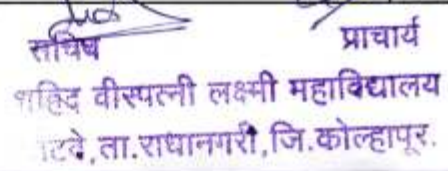 सचिव प्राचार्य
शहिद वीरपत्नी लक्ष्मी महाविद्यालय
ता.राधानगरी,जि.कोल्हापूर.